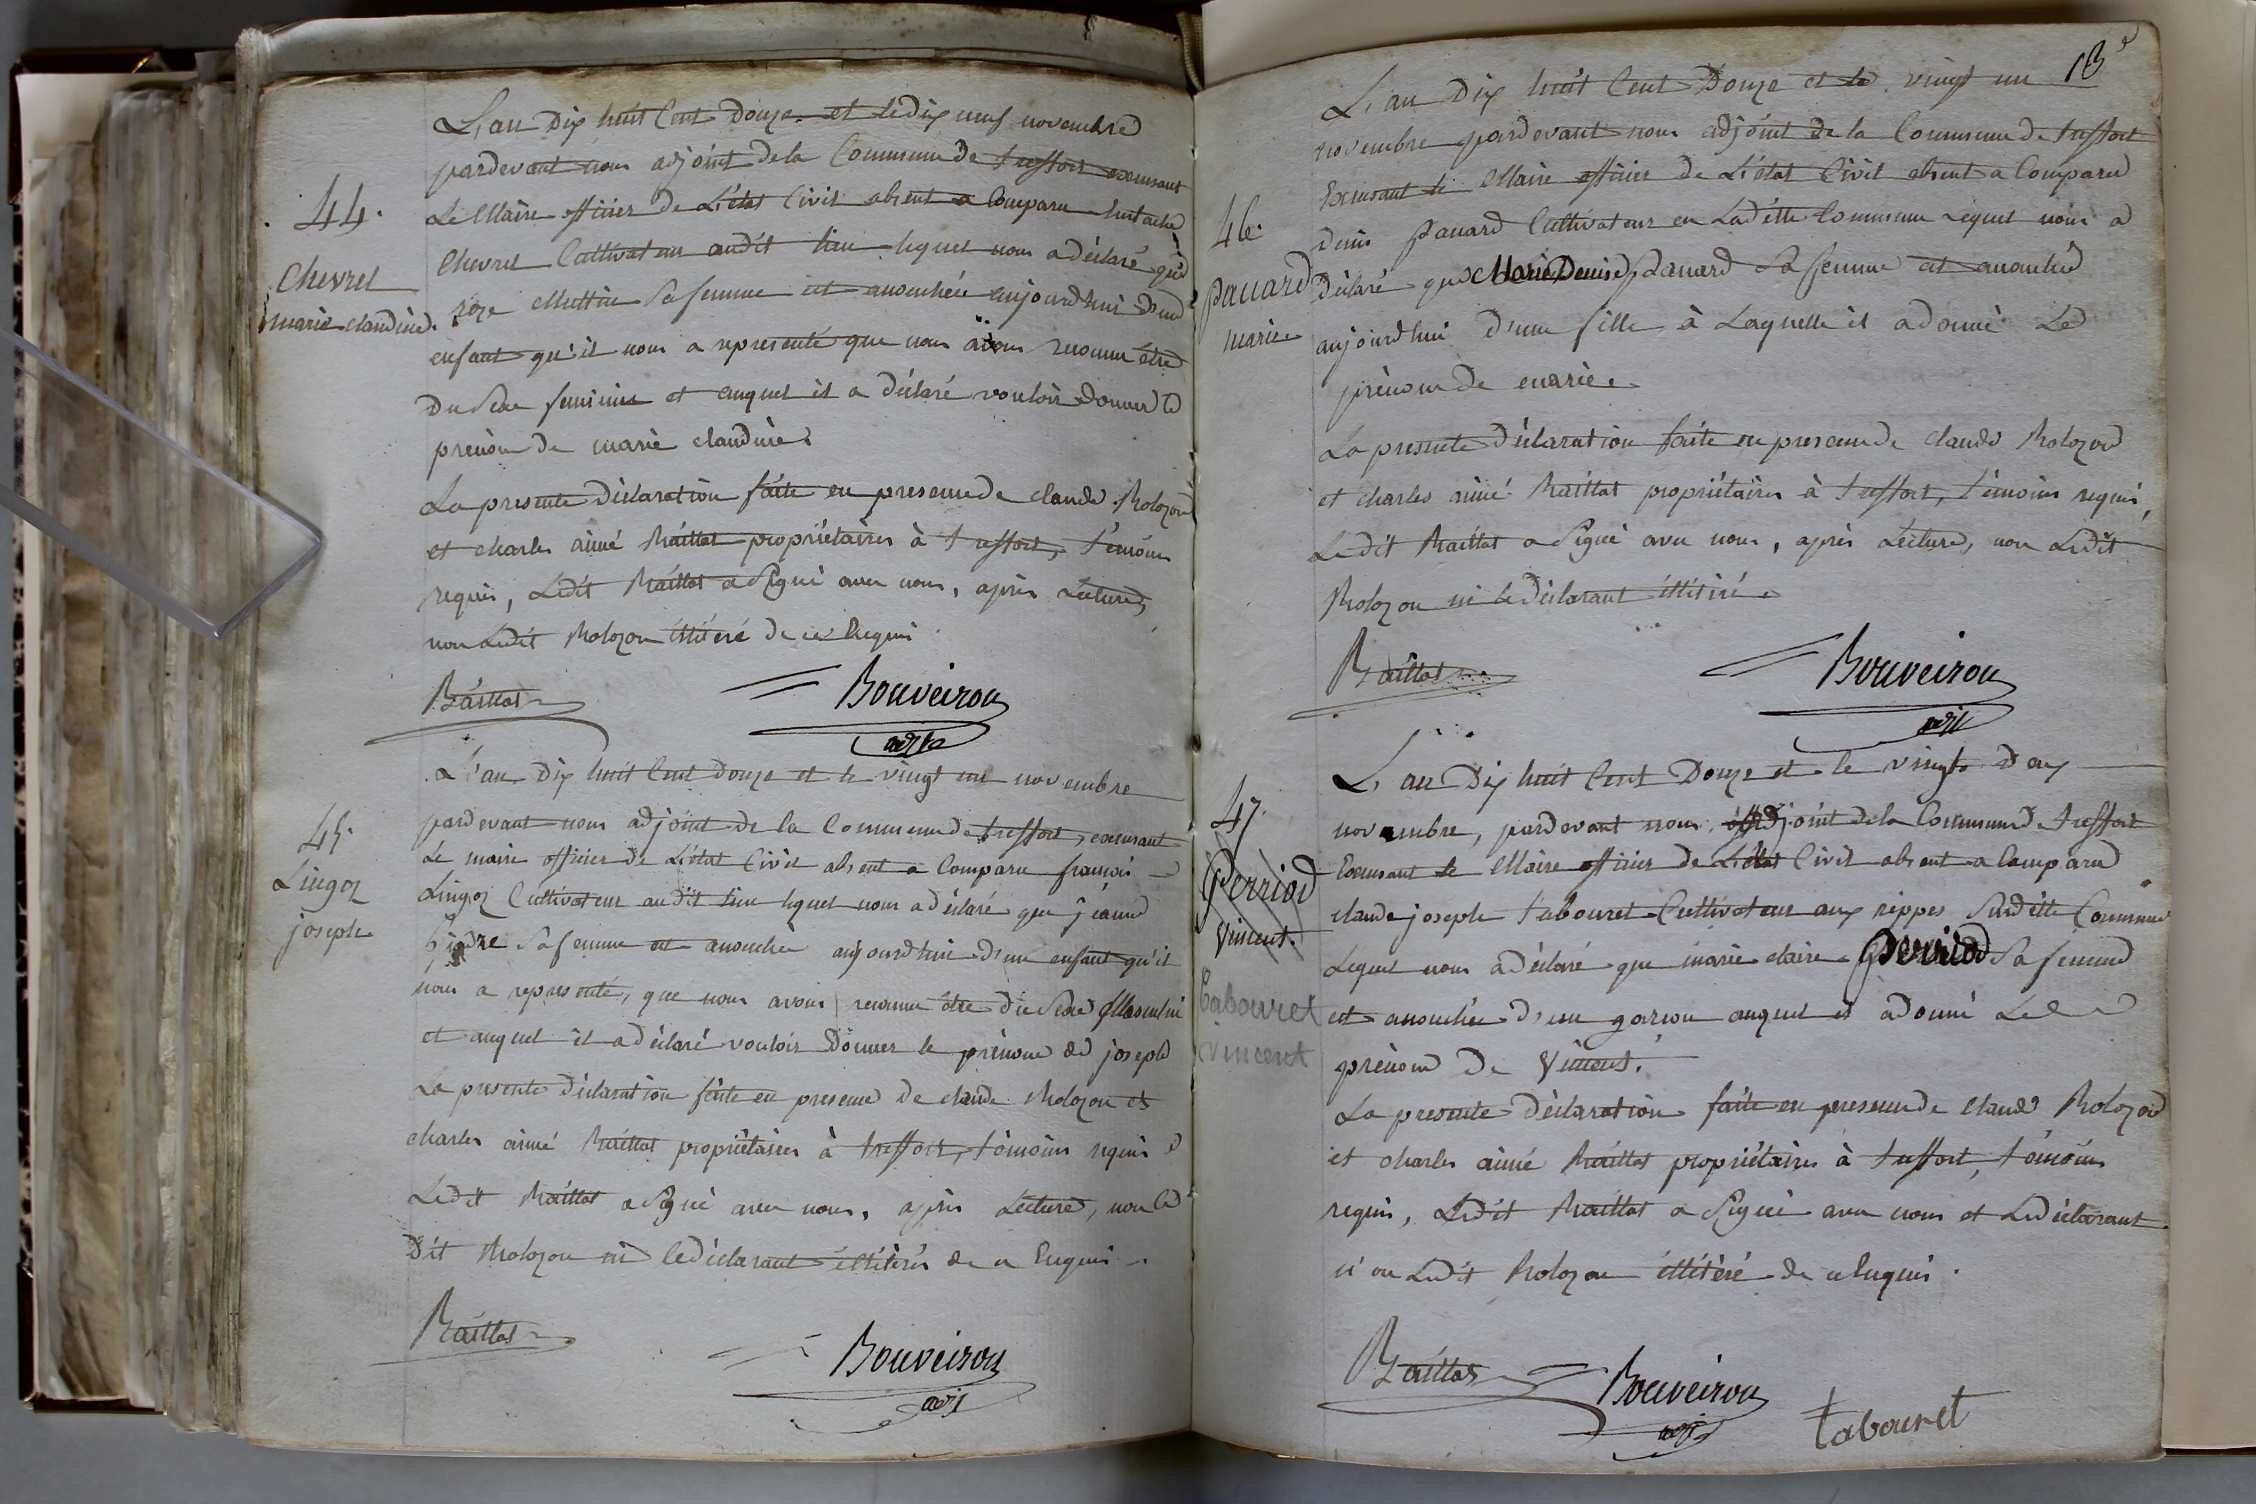 44.
Chevrel
marie claudine.
L'an Dix huit Cent Douze et le dix neuf novembre
pardevant nous adjoint de la Commune de treffort excusant
Le Maire officier de L'état Civil absent a Comparu Eustache
Chevrel Cultivateur audit lieu lequel nous a déclaré que
roze Muttin Sa femme est accouchée aujourd'hui d'un
enfant qu'il nous a representé que nous avons reconnu être
Du Sexe feminin et auquel il a déclaré vouloir donner le
prenom de marie claudine
La presente déclaration faite en presence de claude Molozon
et charles aimé Raillat propriétaires à treffort, témoins
requis, Ledit Raillat a Signé avec nous, après Lecture,
non Ledit Molozon illitéré de ce Enquis
Raillat
Bouveiron
adjt
45.
Lingoz
joseph
L'an Dix huit Cent Douze et le vingt un novembre
pardevant nous adjoint de la Commune de treffort, excusant
Le maire officier de L'état Civil absent a Comparu francois
Lingoz Cultivateur audit lieu lequel nous a déclaré que jeanne
Sa femme est accouchée aujourd'hui d'un enfant qu'il
nous a representé, que nous avons reconnu être du Sexe Masculin
et auquel il a déclaré vouloir Donner le prénom de joseph
La presente déclaration faite en presence de claude Molozon et
charles aimé Raillat propriétaires à treffort, témoins requis
Ledit Raillat a Signé avec nous, après Lecture, non le
dit Molozon ni le déclarant illitérés de ce Enquis
Raillat
Bouveiron
adjt
46.
panard
marie
L'an Dix huit Cent Douze et le vingt un
novembre pardevant nous adjoint de la Commune de treffort
Excusant le Maire officier de L'état Civil absent a Comparu
denis panard Cultivateur en Ladite Commune Lequel nous a
déclaré que Marie Denise panard Sa femme est accouchée
aujourd'hui d'une fille à Laquelle il a donné Le
prénom de marie.
La presente déclaration faite en presence de claude Molozon
et charles aimé Raillat propriétaires à treffort, témoins requis,
Ledit Raillat a Signé avec nous, après Lecture, non Ledit
Molozon ni le déclarant illitéré
Raillat
Bouveiron
adjt
47.
Perriod
Vincent.
tabouret
vincent
L'an Dix huit Cent Douze et le vingt deux
novembre, pardevant nous, adjoint de la Commune de treffort
Excusant le Maire officier de L'état Civil absent a Comparu
claude joseph tabouret Cultivateur aux rippes Sudite Commune
Lequel nous a déclaré que marie claire Perriod Sa femme
est accouchée d'un garcon auquel il a donné Le
prénom de Vincent.
La presente déclaration faite en presence de claude Molozon
et charles aimé Raillat propriétaires à treffort, témoins
requis, Ledit Raillat a Signé avec nous et Le déclarant
non Ledit Molozon illitéré de ce Enquis.
Raillat
Bouveiron
adjt
tabouret